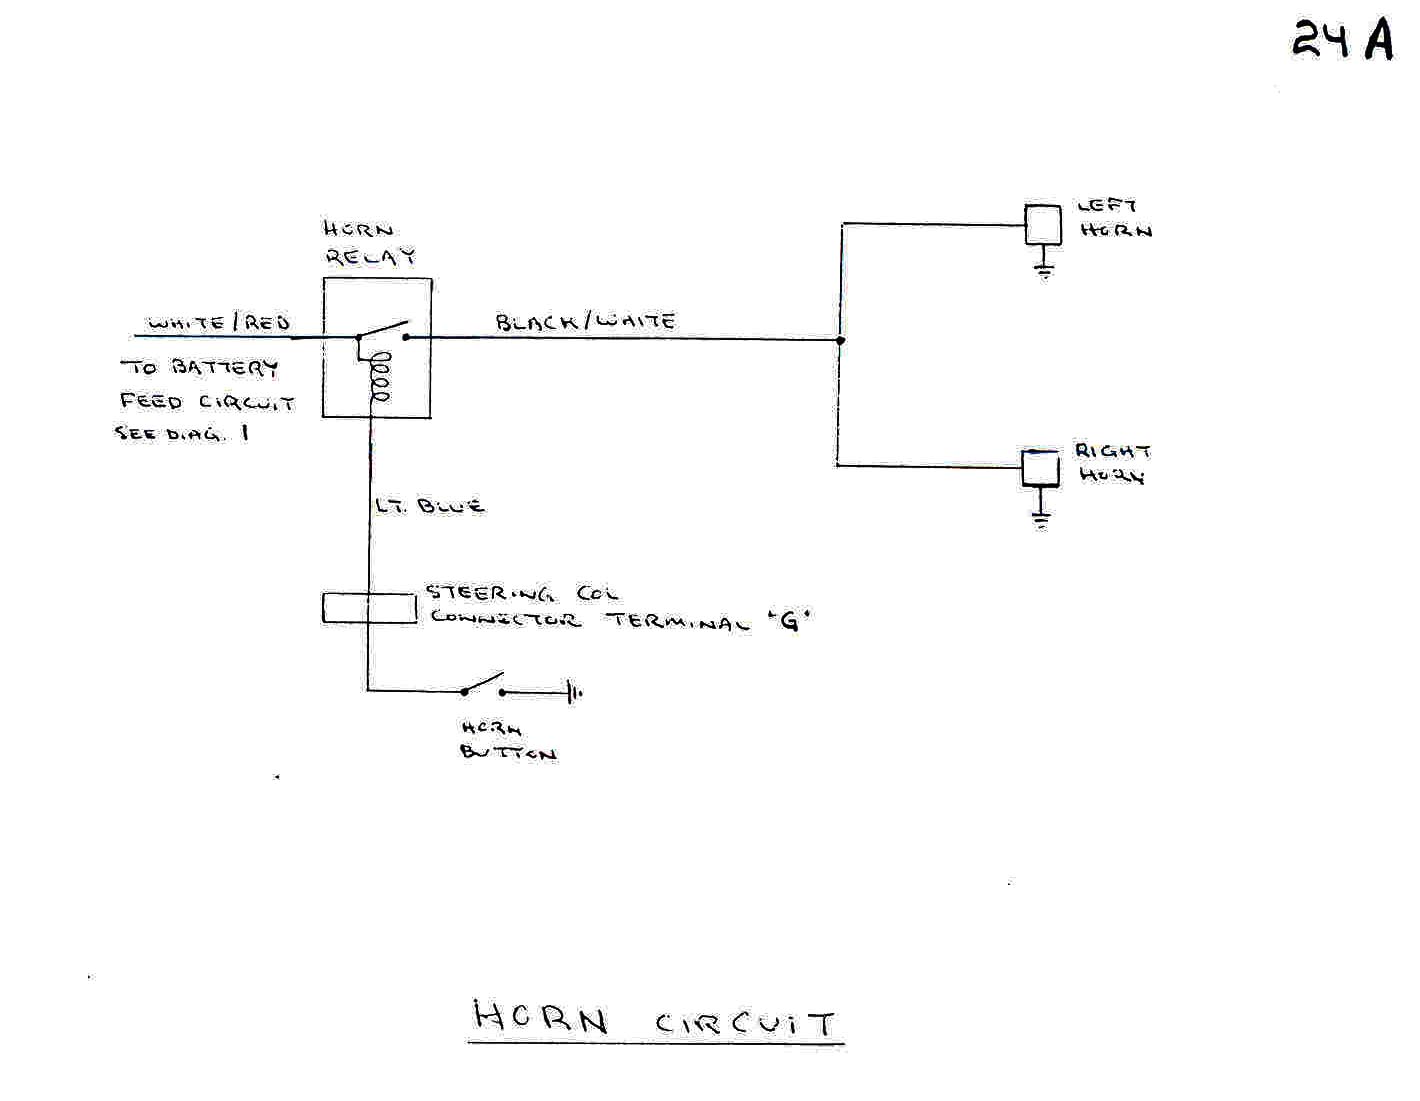 24 A
LEFT
HORN
HORN
RELAY
WHITE/RED
BLACK/WHITE
TO BATTERY
FEED CIRCUIT
SEE DIAG. 1
RIGHT
HORN
LT. BLUE
STEERING COL
CONNECTOR TERMINAL "G"
HORN
BUTTON
HORN CIRCUIT